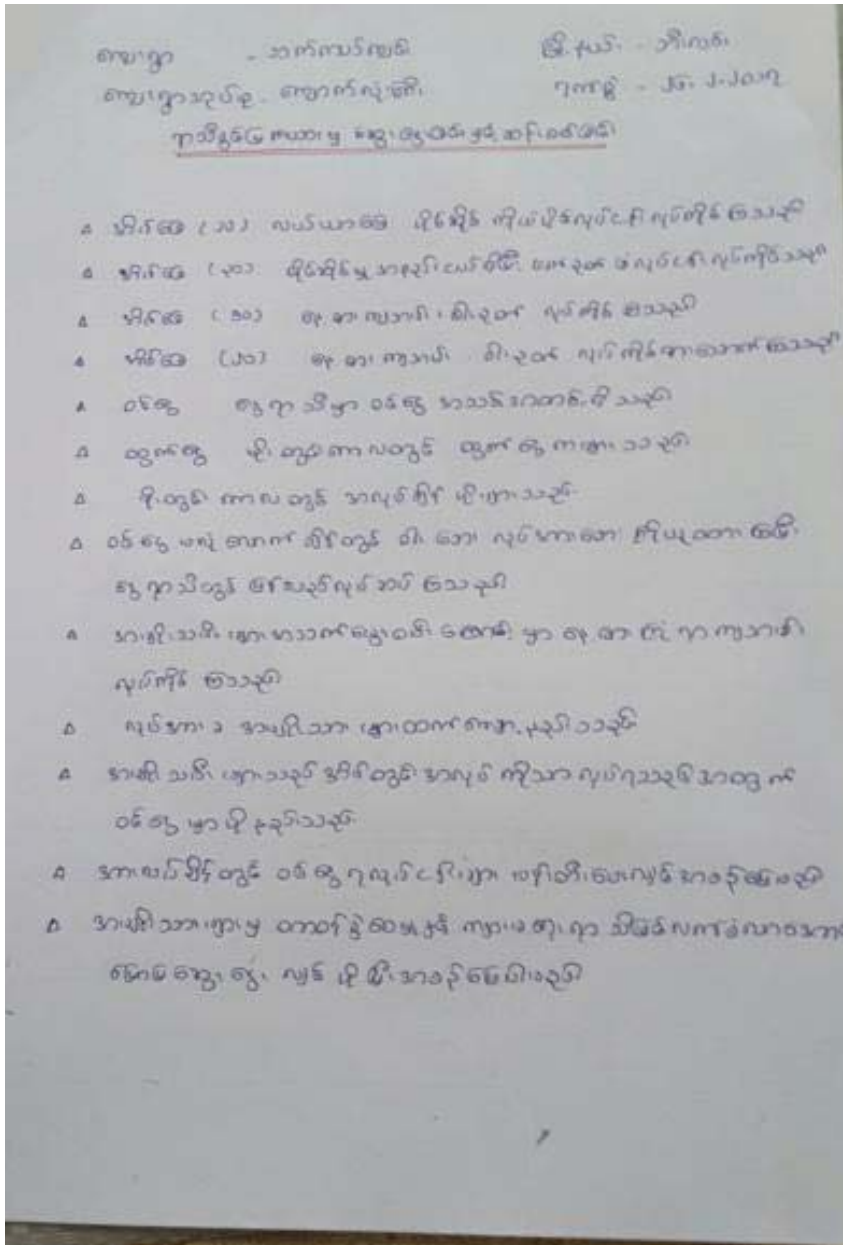 ကျေးရွာ - ဘက်ကပ်ကျင်း မြို့နယ် - ဘီးလင်း
ကျေးရွာအုပ်စု - ရက်စွဲ - ၂၆.၂.၂၀၁၇
ရာသီခွင်ပြကဒယားမှ ဆွေးနွေးခြင်းနှင့် ဆန်းစစ်ခြင်း
▵ အိမ်ခြေ (၁၀) လယ်ယာမြေ ပိုင်ဆိုင် ကိုယ်ပိုင်လုပ်ငန်း လုပ်ကိုင်ကြသည်။
▵ အိမ်ခြေ (၃၀) ပိုင်ဆိုင်မှု အနည်းငယ်ရှိပြီး လုပ်ငန်း လုပ်ကိုင်သည်။
▵ အိမ်ခြေ (၈၀) နေ့စား ကျဘမ်း ဝါးခုတ် လုပ်ကိုင်ကြသည်။
▵ အိမ်ခြေ (၂၀) နေ့စား ကျဘမ်း ဝါးခုတ် လုပ်ကိုင်စားသောက်ကြသည်။
▵ ဝင်ငွေ နွေရာသီမှာ ဝင်ငွေ အသင့်အတင့်ရှိသည်။
▵ ထွက်ငွေ မိုးတွင်းကာလတွင် ထွက်ငွေများသည်။
▵ မိုးတွင်းကာလတွင် အလုပ်ချိန် ပိုများသည်။
▵ ဝင်ငွေ မလုံလောက်ချိန်တွင် လုပ်အားခ ကြိုယူထားပြီး
နွေရာသီတွင် ပြန်လည်လုပ်ဆပ်ကြသည်။
▵ အမျိုးသမီးများ အသက်မွေးဝမ်းကျောင်းမှာ နေ့စား ကြုံရာကျဘမ်း
လုပ်ကိုင်ကြသည်။
▵ လုပ်အားခ အမျိုးသားများထက် နည်းသည်။
▵ အမျိုးသမီးများသည် အိမ်တွင်းအလုပ်ကိုသာ လုပ်ရသည့်အတွက်
ဝင်ငွေမှာ ပိုနည်းသည်။
▵ အားလပ်ချိန်တွင် ဝင်ငွေရလုပ်ငန်းများ ဖန်တီးပေးလျှင် အဆင်ပြေမည်။
▵ အမျိုးသားများမှ တာဝန်ခွဲဝေမှုနှင့်
ဆွေးနွေးလျှင် ပိုပြီးအဆင်ပြေပါမည်။